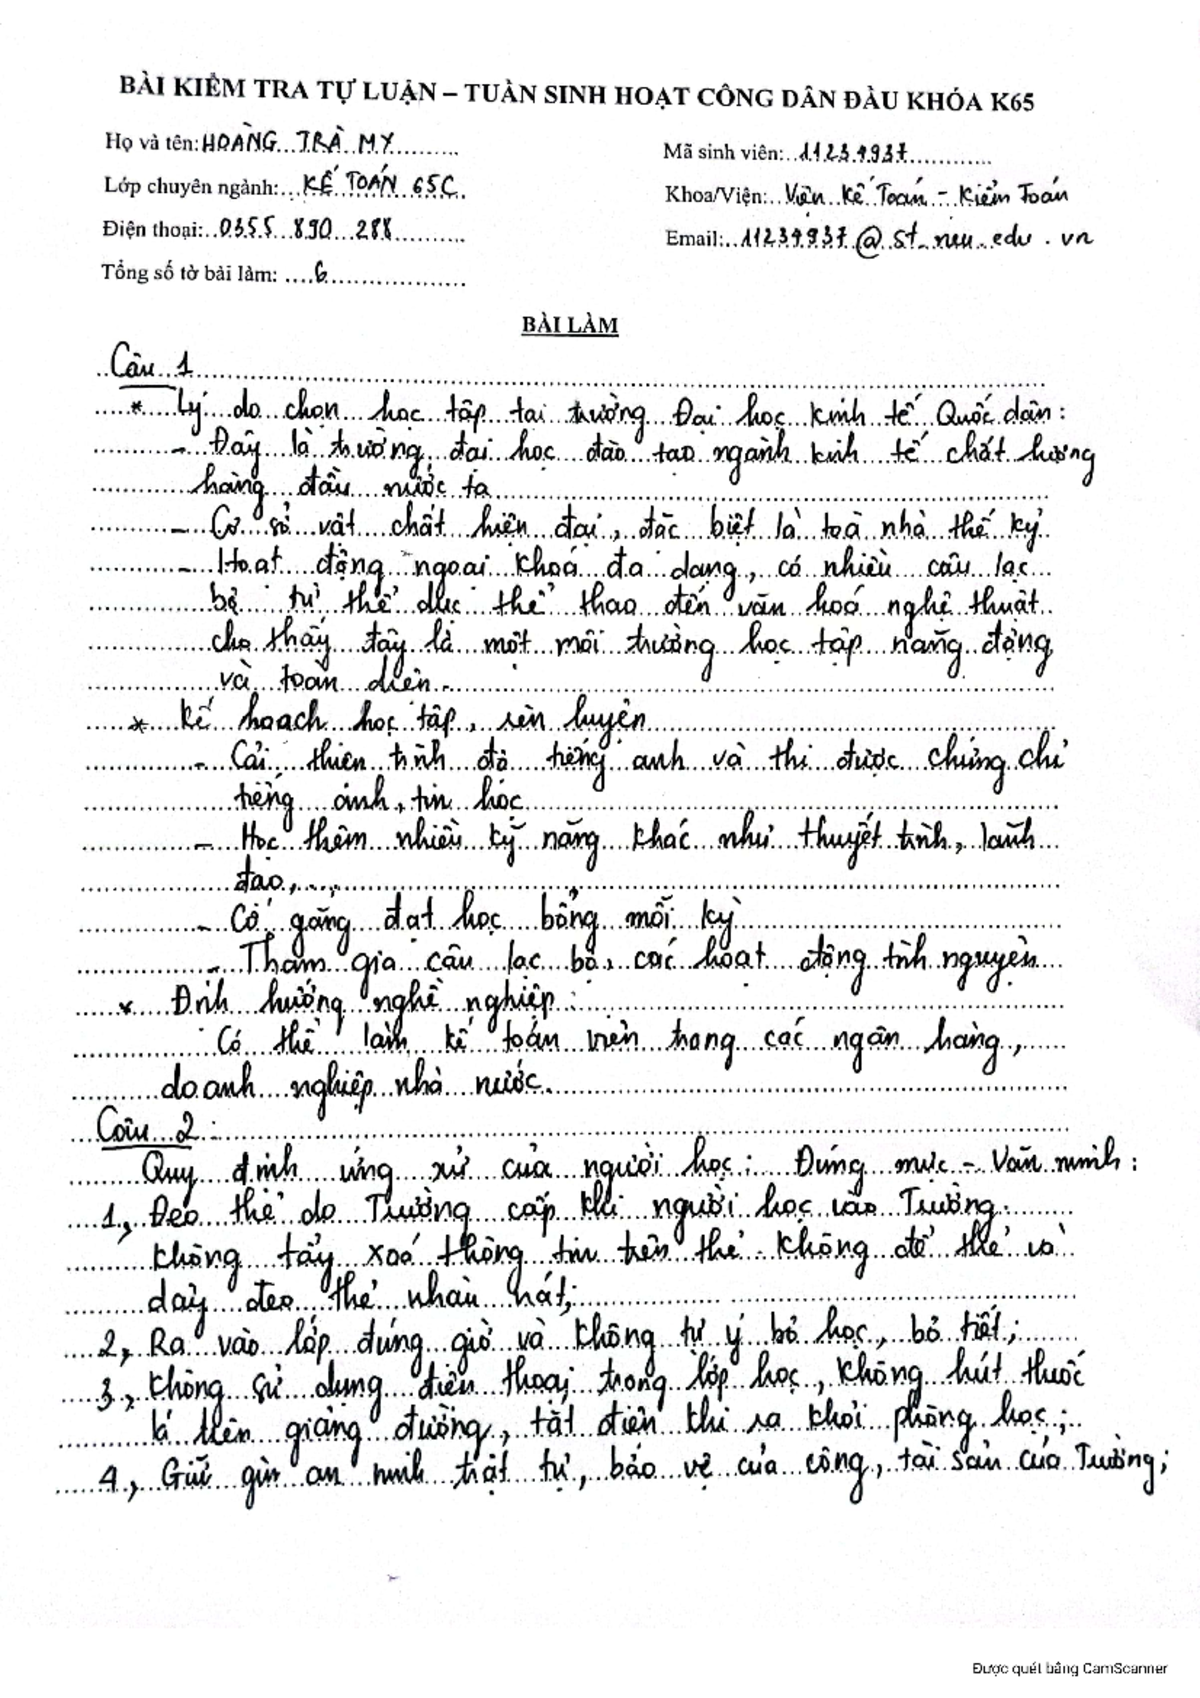 BÀI KIỂM TRA TỰ LUẬN – TUẦN SINH HOẠT CÔNG DÂN ĐẦU KHÓA K65
Họ và tên: HOÀNG TRÀ MY
Mã sinh viên: 11234937
Lớp chuyên ngành: KẾ TOÁN 65C
Khoa/Viện: Viện Kế Toán - Kiểm Toán
Điện thoại: 0355 890 288
Email: 11234937@st.neu.edu.vn
Tổng số tờ bài làm: 6
BÀI LÀM
Câu 1
* Lý do chọn học tập tại trường Đại học Kinh tế Quốc dân:
- Đây là trường đại học đào tạo ngành kinh tế chất lượng
hàng đầu nước ta
- Cơ sở vật chất hiện đại, đặc biệt là toà nhà thế kỷ
- Hoạt động ngoại khoá đa dạng, có nhiều câu lạc
bộ từ thể dục thể thao đến văn hoá nghệ thuật
cho thấy đây là một môi trường học tập năng động
và toàn diện.
* Kế hoạch học tập, rèn luyện
- Cải thiện trình độ tiếng anh và thi được chứng chỉ
tiếng anh, tin học
- Học thêm nhiều kỹ năng khác như thuyết trình, lãnh
đạo,...
- Cố gắng đạt học bổng mỗi kỳ
- Tham gia câu lạc bộ, các hoạt động tình nguyện
* Định hướng nghề nghiệp :
Có thể làm kế toán viên trong các ngân hàng,
doanh nghiệp nhà nước.
Câu 2 :
Quy định ứng xử của người học: Đúng mực - Văn minh :
1, Đeo thẻ do Trường cấp khi người học vào Trường.
Không tẩy xoá thông tin trên thẻ. Không để thẻ và
dây đeo thẻ nhàu nát;
2, Ra vào lớp đúng giờ và không tự ý bỏ học, bỏ tiết;
3, Không sử dụng điện thoại trong lớp học, không hút thuốc
lá trên giảng đường, tắt điện khi ra khỏi phòng học;
4, Giữ gìn an ninh trật tự, bảo vệ của công, tài sản của Trường;
Được quét bằng CamScanner